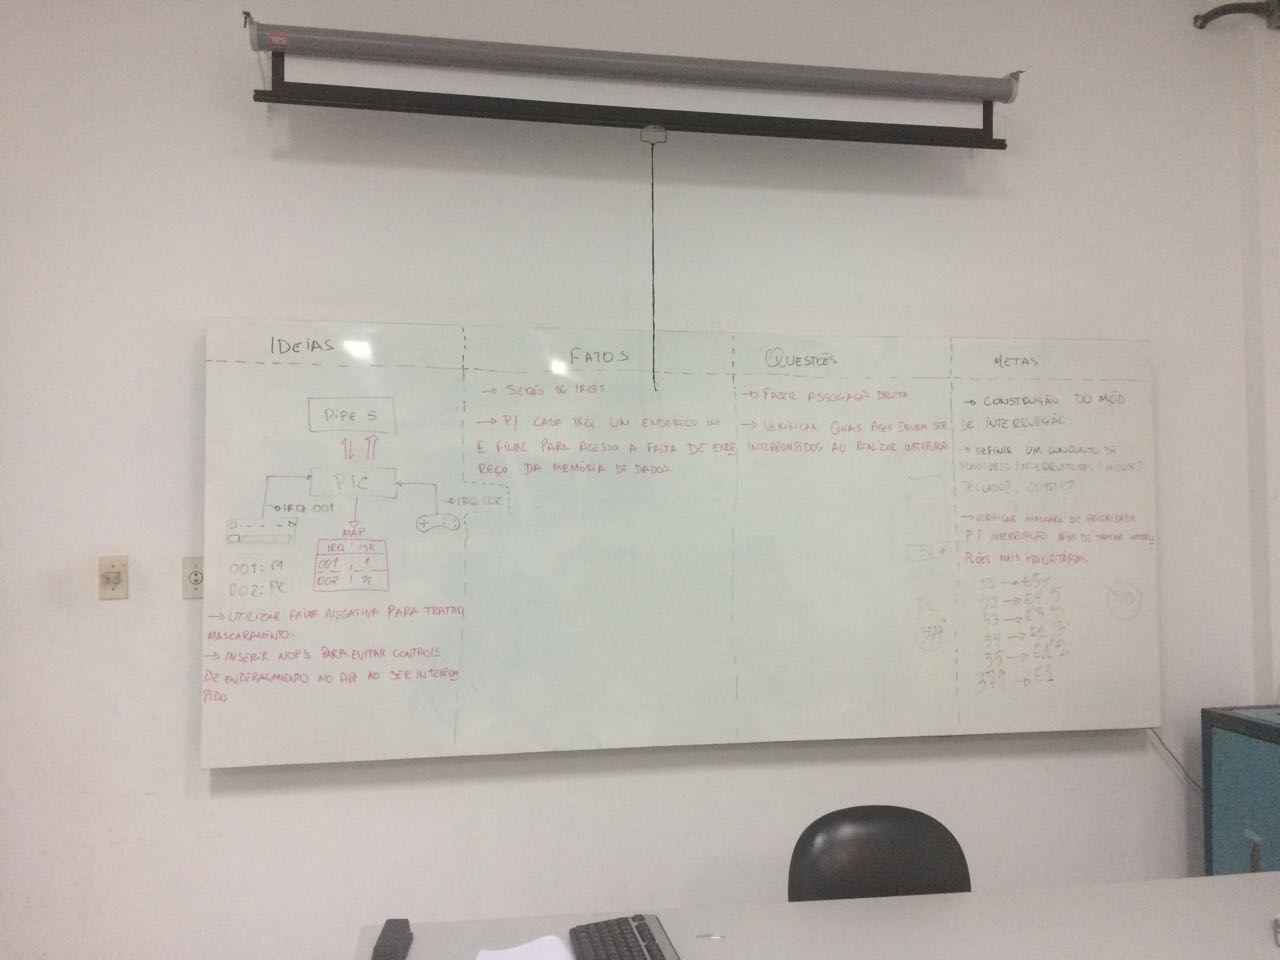 IDEIAS
PIPE 5
PIC
IRQ 001
IRQ 002
MAP
IRQ ISR
001 1
002 n
001: M
002: PC
→ UTILIZAR FAIXA NEGATIVA PARA TRATAR
MASCARAMENTO.
→ INSERIR NOP'S PARA EVITAR CONTROLE
DE ENDERAÇAMENTO NO AO SER INTERROM
PIDO
FATOS
→ SERÃO 16 IRQS
→ P/ CADA IRQ UM ENDEREÇO INI
E FINAL PARA ACESSO A FAIXA DE ENDE
REÇO DA MEMÓRIA DE DADOS.
QUESTÕES
→ FAZER ASSOCIAÇÃO DIRETA
→ VERIFICAR QUAIS PIPES DEVEM SER
INTERROMPIDOS AO REALIZAR
PC
379
METAS
→ CONSTRUÇÃO DO MÓD.
DE INTERRUPÇÃO.
→ DEFINIR UM CONJUNTO DE
POSSÍVEIS (MOUSE?,
TECLADO?, JOYSTICK?
→ VERIFICAR MASCARA DE PRIORIDADE
P/ INTERRUPÇÃO AFIM DE TRATAR INTERRU
PÇÕES MAIS PRIORITÁRIAS
53 →
52 →
53 →
54 →
55 →
379 → E1